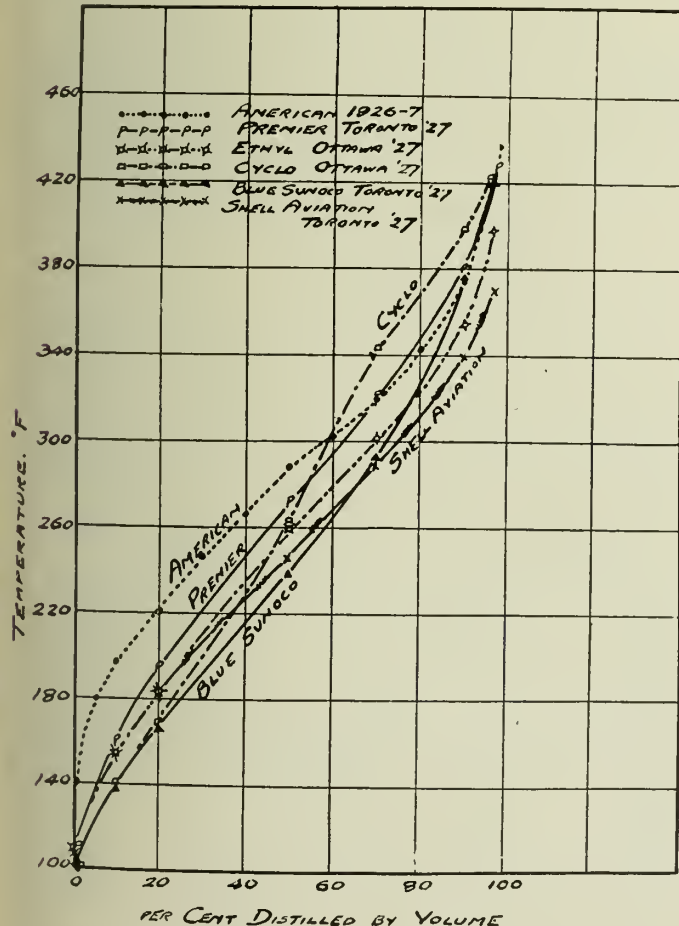 460
420
380
340
300
260
220
180
140
100
TEMPERATURE. °F
AMERICAN 1926-7
P-P-P-P-P PREMIER TORONTO '27
ETHYL OTTAWA '27
CYCLO OTTAWA '27
BLUE SUNOCO TORONTO '27
SHELL AVIATION
TORONTO '27
CYCLO
SHELL AVIATION
AMERICAN
PREMIER
BLUE SUNOCO
0 20 40 60 80 100
PER CENT DISTILLED BY VOLUME